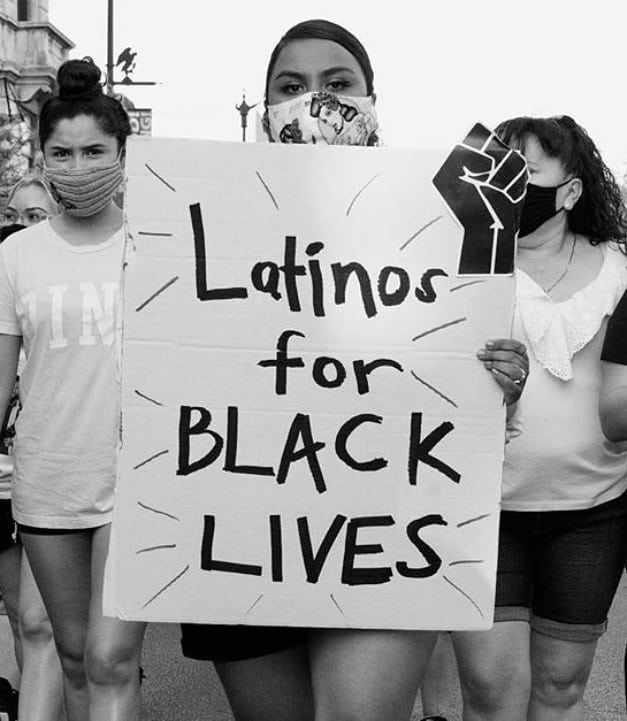 Latinos
for
BLACK
LIVES
PIN